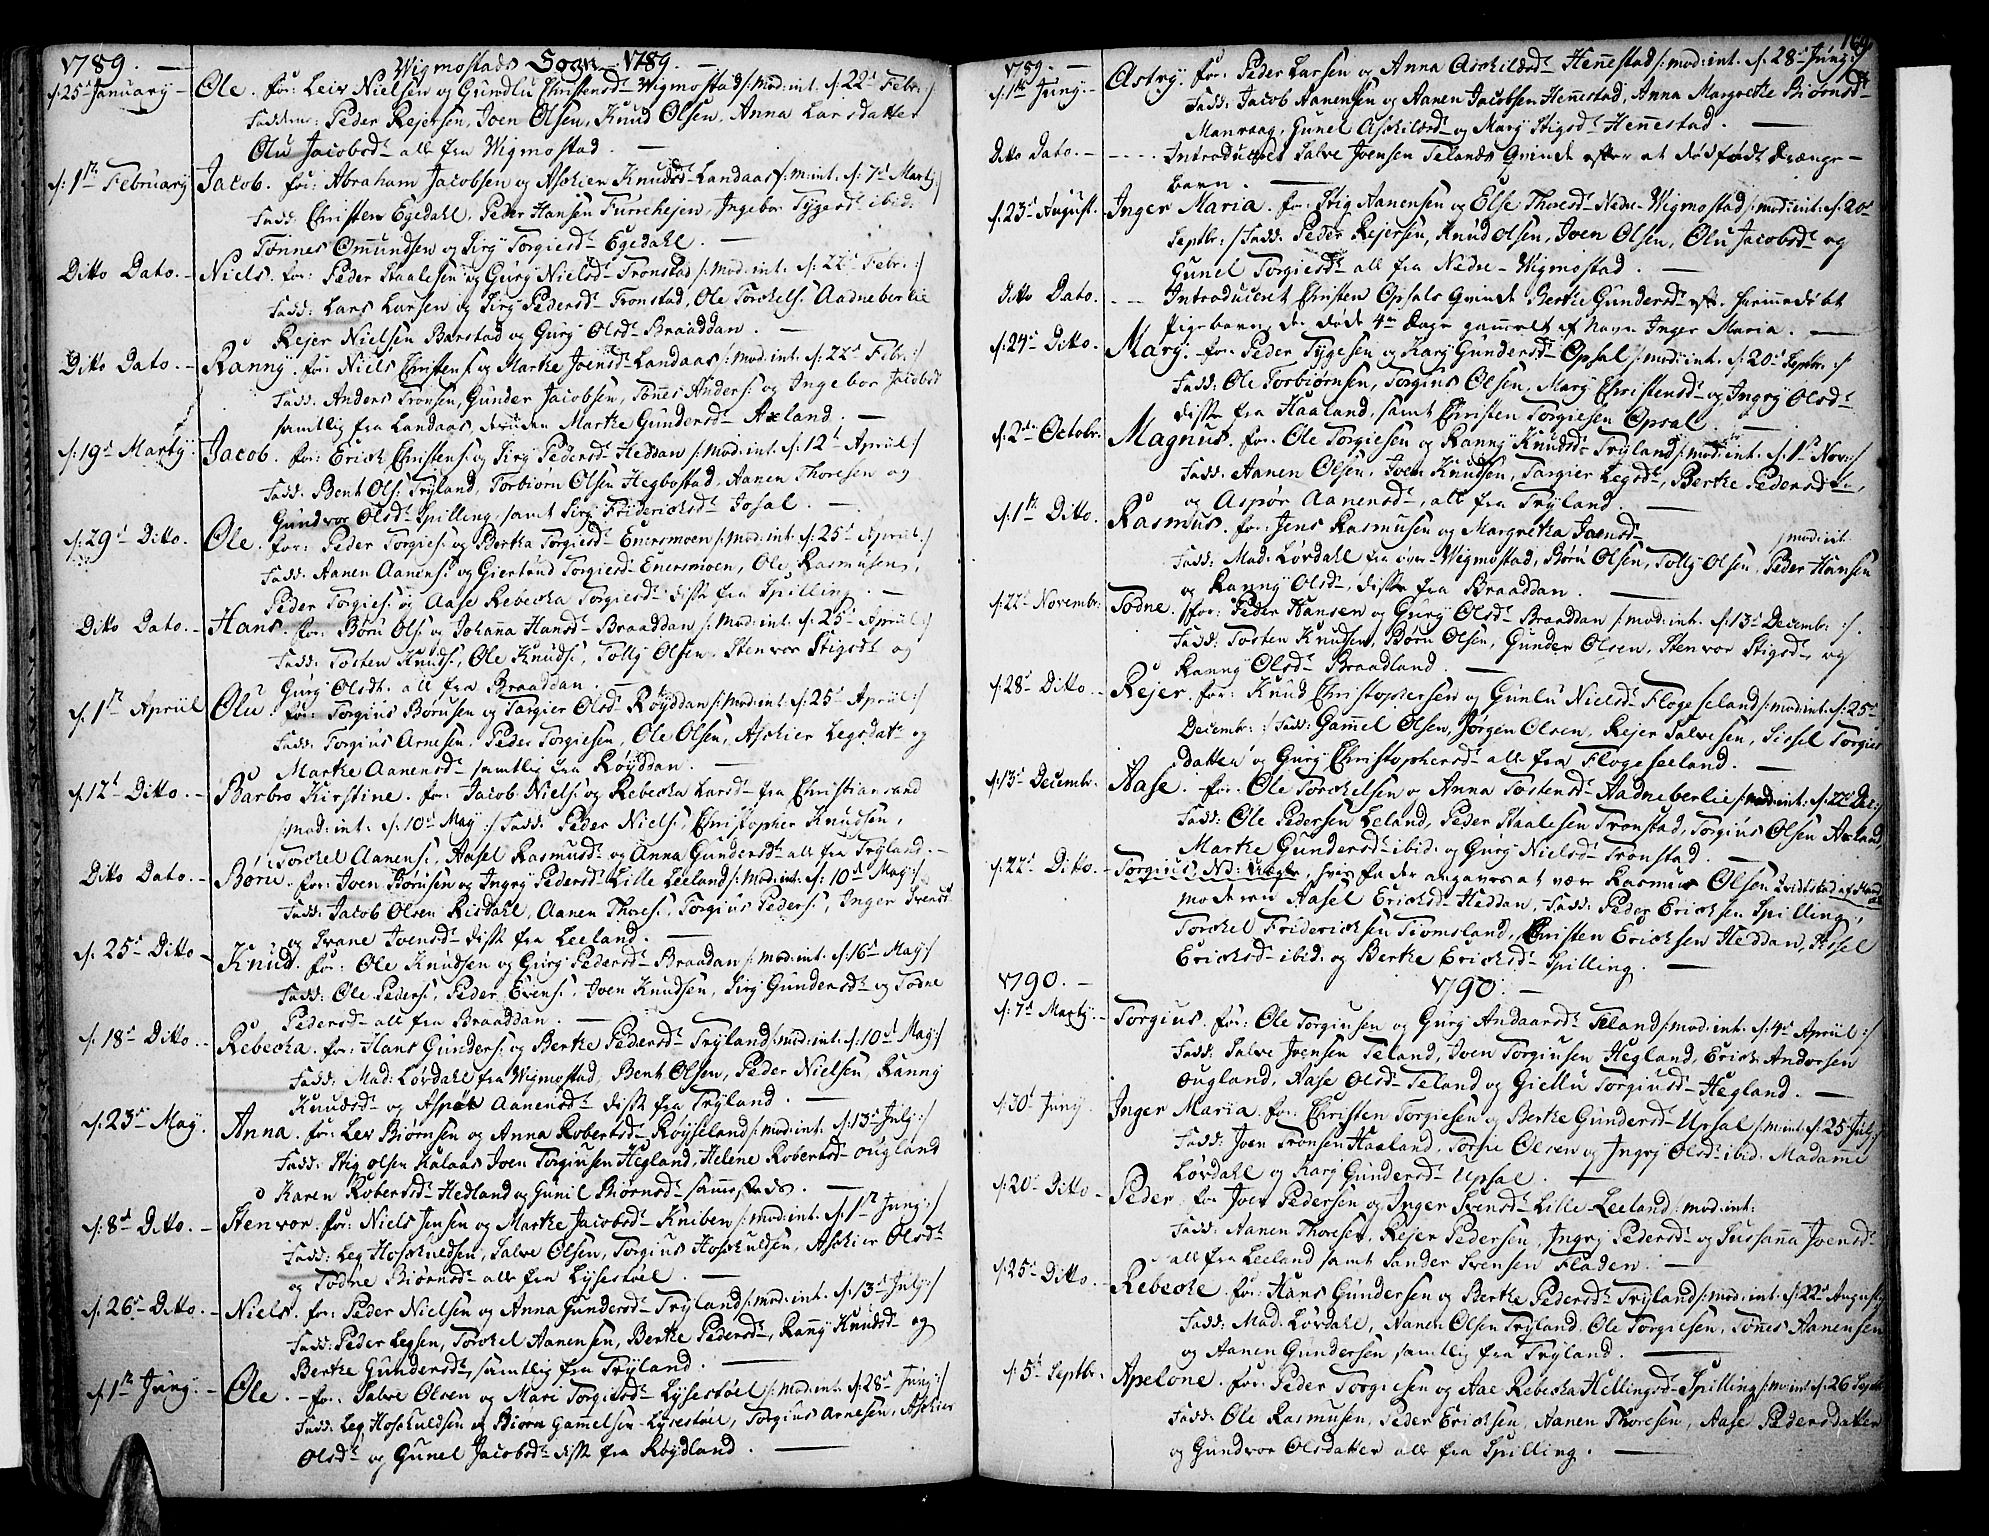 1789. — Wigmostads Sogn 1789. —
d: 25de January – Ole. for: Leiv Nielsen og Gundlu Christensd: Wigmostad /: mod: int: d: 22d Febr: :/
Fadderne: Peder Rejersen, Joen Olsen, Knud Olsen, Anna Larsdatter
Olu Jacobsd: alle fra Wigmostad. —
d: 1ste February Jacob. for: Abraham Jacobsen og Asckier Knudsd: Landaas /: m: int: d: 7d Marty :/
Fadd: Christen Egedahl, Peder Hansen Furrehejen, Ingebor Tygesd: ibid:
Tønnes Omundsen og Sirg Torgiesd: Egedahl. —
Ditto Dato. – Niels. for: Peder Staalesen og Gurg Nielsd: Tronstad /: mod: int: d: 22d Febr: :/
Fadd: Lars Larsen og Sirg Pedersd: Tronstad, Ole Torckels: Aadneberlie
Rejer Nielsen Barstad og Gurg Olsd: Braaddan. —
Ditto Dato. – Ranny. for: Niels Christens: og Marthe Joensd: Landaas /: mod: int: d: 22d Febr: :/
Fadd: Anders Tronsen, Gunder Jacobsen, Tønes Anders: og Ingebor Jacobsd:
samtlig fra Landaas, desuden Marthe Gundersd: Axland. —
d: 19d Marty: Jacob. for: Erick Christens: og Sirg Pedersd: Heddan /: mod: int: d: 12t Apriil :/
Fadd: Bent Ols: Tryland, Torbiorn Olsen Hegbostad, Aanen Thoresen og
Gundvor Olsd: Spilling, samt Sirg Fridericksd: Josal. —
d: 29d Ditto. Ole. for: Peder Torgies: og Bertha Torgiesd: Enersmoen /: mod: int: d: 25d Apriil :/
Fadd: Aanen Aanens: og Giertrud Torgiesd: Enersmoen, Ole Rasmusen,
Peder Torgies: og Aase Rebecka Torgiesd: disse fra Spilling. —
Ditto Dato. – Hans. for: Børu Ols: og Johanna Hansd: Braaddan /: mod: int: d: 25d Apriil :/
Fadd: Tosten Knuds:, Ole Knuds:, Tolly Olsen, Stenvor Stigsdt: og
Gurg Olsdt: all fra Braaddan. —
d: 1ste Apriil Olu. for: Torgius Børusen og Targier Olsd: Røyddan /: mod: int: d: 25d Apriil :/
Fadd: Torgius Arnesen, Peder Torgiesen, Ole Olsen, Asckier Legsdat: og
Marthe Aanensd: samtlig fra Røyddan. —
d: 12t Ditto. – Barbro Kirstine. for: Jacob Niels: og Rebecka Larsd: fra Christiansand
/: mod: int: d: 10d May :/ Fadd: Peder Niels:, Christopher Knudsen,
Torckel Aanens:, Aasel Rasmusd: og Anna Gundersd: all fra Tryland. –
Ditto Dato. – Børu. for: Joen Børusen og Ingry Pedersd: Lille Leeland /: mod: int: d: 10d May :/
Fadd: Jacob Olsen Risdahl, Aanen Thores:, Torgius Peders:, Inger Svensd:
og Svane Joensd: disse fra Leeland. —
d: 25d Ditto – Knud. for: Ole Knudsen og Gurg Pedersd: Braadan /: mod: int: d: 16d May :/
Fadd: Ole Peders:, Peder Evens:, Joen Knudsen, Sirg Gundersd: og Todne
Pedersd: all fra Braaddan. —
d: 18d Ditto. – Rebecka. for: Hans Gunders: og Berthe Pedersd: Tryland /: mod: int: d: 10d May :/
Fadd: Mad: Lørdahl fra Wigmostad, Bent Olsen, Peder Nielsen, Ranny
Knudsd: og Aspør Aanensd: disse fra Tryland. —
d: 23d May. Anna. for: Lev Biørnsen og Anna Robertsd: Røyseland /: mod: int: d: 13d July :/
Fadd: Stig Olsen Kalaas, Joen Torgiusen Hegland, Helene Robertsd: Ougland
Karen Robertsd: Hedland og Gunil Biørnsd: sammesteds. —
d: 8d Ditto. – Stenvor. for: Niels Jensen og Marthe Jacobsd: Kniben /: mod: int: d: 1ste Juny :/
Fadd: Leg Hosckuldsen, Salve Olsen, Torgius Hosckuldsen, Asckier Olsd:
og Todne Biørnsd: alle fra Lysestøel. —
d: 26d Ditto. – Niels. for: Peder Nielsen og Anna Gundersd: Tryland /: mod: int: d: 13d July :/
Fadd: Peder Legsen, Torckel Aanensen, Berthe Pedersd:, Ranny Knudsd: og
Berthe Gundersd:, samtlig fra Tryland. —
d: 1ste Juny. – Ole. – for: Salve Olsen og Mari Torgilsd: Lysestøel /: mod: int: d: 28d Juny :/
Fadd: Leg Hosckuldsen og Biorn Gammelsen Lysestøel, Torgius Arnesen, Asckier
Olsd: og Gunel Jacobsd: disse fra Røydland. —
1789. —
d: 1ste Juny: – Astry. for: Peder Larsen og Anna Asckildsd: Hennestad /: mod: int: d: 28d Juny :/
Fadd: Jacob Aanensen og Aanen Jacobsen Hennestad, Anna Margrethe Biørnsd:
Manvaag, Gunel Asckildsd: og Mary Stigsd: Hennestad. —
Ditto Dato. – - - - - Introduceret Salve Joensen Telands Qvinde efter et dødfødt Drænge-
barn. —
d: 23d August. Inger Maria. for: Stig Aanensen og Else Thoresd: Nedre-Wigmostad /: mod: int: d: 20d
Septbr: :/ Fadd: Peder Rejersen, Knud Olsen, Joen Olsen, Olu Jacobsd: og
Gunel Torgiesd: all fra Nedre-Wigmostad. —
Ditto Dato. - - - Introduceret Christen Opsals Qvinde Berthe Gundersd: eft: hiemmedøbt
Pigebarn, der døde 4re Dage gammelt af Navn Inger Maria. —
d: 24d Ditto. Mary. for: Peder Tygesen og Karg Gundersd: Opsal /: mod: int: d: 20d Septbr: :/
Fadd: Ole Torbiørnsen, Torgius Olsen, Mary Christensd: og Ingry Olsd:
disse fra Haaland, samt Christen Torgiesen Opsal.
d: 2den Octobr. Magnus. for: Ole Torgiesen og Ranny Knudsd: Tryland /: mod: int: d: 1ste Nov: :/
Fadd: Aanen Olsen, Joen Knudsen, Targier Legsd:, Berthe Pedersd:
og Aspør Aanensd:, all fra Tryland. —
d: 1ste Ditto. Rasmus. for: Jens Rasmusen og Margretha Joensd: /: mod: int:
Fadd: Mad: Lørdahl fra øvre-Wigmostad, Børu Olsen, Tolly Olsen, Peder Hansen
og Ranny Olsd:, disse fra Braaddan. —
d: 22d Novembr: Todne. for: Peder Hansen og Gurg Olsd: Braaddan /: mod: int: d: 13d Decembr: :/
Fadd: Tosten Knudsen, Børu Olsen, Gunder Olsen, Stenvor Stigsd:, og
Ranny Olsd: Braadland. —
d: 28d Ditto. – Rejer. for: Knud Christophersen og Gunlu Nielsd: Flogeseland /: mod: int: d: 25d
Decembr: :/ Fadd: Gammel Olsen, Jørgen Olsen, Rejer Salvesen, Sissel Torgies
datter og Gurg Christophersd: all fra Flogeseeland. —
d: 13d Decembr. Aase. for: Ole Torckelsen og Anna Tostensd: Aadneberlie /: mod: int: d: 22d Dec: :/
Fadd: Ole Pedersen Leland, Peder Staalesen Tronstad, Torgius Olsen Axland,
Marthe Gundersd: ibid: og Gurg Nielsd: Tronstad. —
d: 22d Ditto. – Torgius, NB: Uægte, hvis Fader angaves at være Rasmus Olsen
moderen Aasel Ericksd: Heddan, Fadd: Peder Ericksen Spilling,
Torckel Fridericksen Tiomsland, Christen Ericksen Heddan, Sissel
Ericksd: ibid: og Berthe Ericksd: Spilling. —
1790. — 1790. —
d: 7d Marty: – Torgius. for: Ole Torgiusen og Gurg Andaarsd: Teland /: mod: int: d: 4d Apriil :/
Fadd: Salve Joensen Teland, Joen Torgiusen Hegland, Erick Andorsen
Ougland, Aase Olsd: Teland og Giellu Torgiusd: Hegland. —
d: 30d Juny. Inger Maria. for: Christen Torgiesen og Berthe Gundersd: Upsal /: m: int: d: 25d July :/
Fadd: Joen Tronsen Haaland, Torsie Olsen og Ingry Olsd: ibid: Madame
Lørdahl og Karg Gundersd: Upsal. —
d: 20d Ditto. – Peder. for Joen Pedersen og Inger Svensd: Lille-Leeland /: mod: int:
Fadd: Aanen Thoresen, Rejer Pedersen, Ingry Pedersd: og Sussanna Joensd:
all fra Leeland samt Sander Svensen Fladen. —
d: 25d Ditto. – Rebecke. for: Hans Gundersen og Berthe Pedersd: Tryland /: mod: int: d: 22d August :/
Fadd: Mad: Lørdahl, Aanen Olsen Tryland, Ole Torgiesen, Tønes Aanensen
og Aanen Gundersen samtlig fra Tryland. —
d: 5d Septbr. Apelone. for: Peder Torgiesen og Aae Rebecka Hellingsd: Spilling /: m: int: d: 26 Sept:
Fadd: Ole Rasmusen, Peder Ericksen, Aanen Thoresen, Aase Pedersdatter
og Gundvor Olsdatter all fra Spilling. —